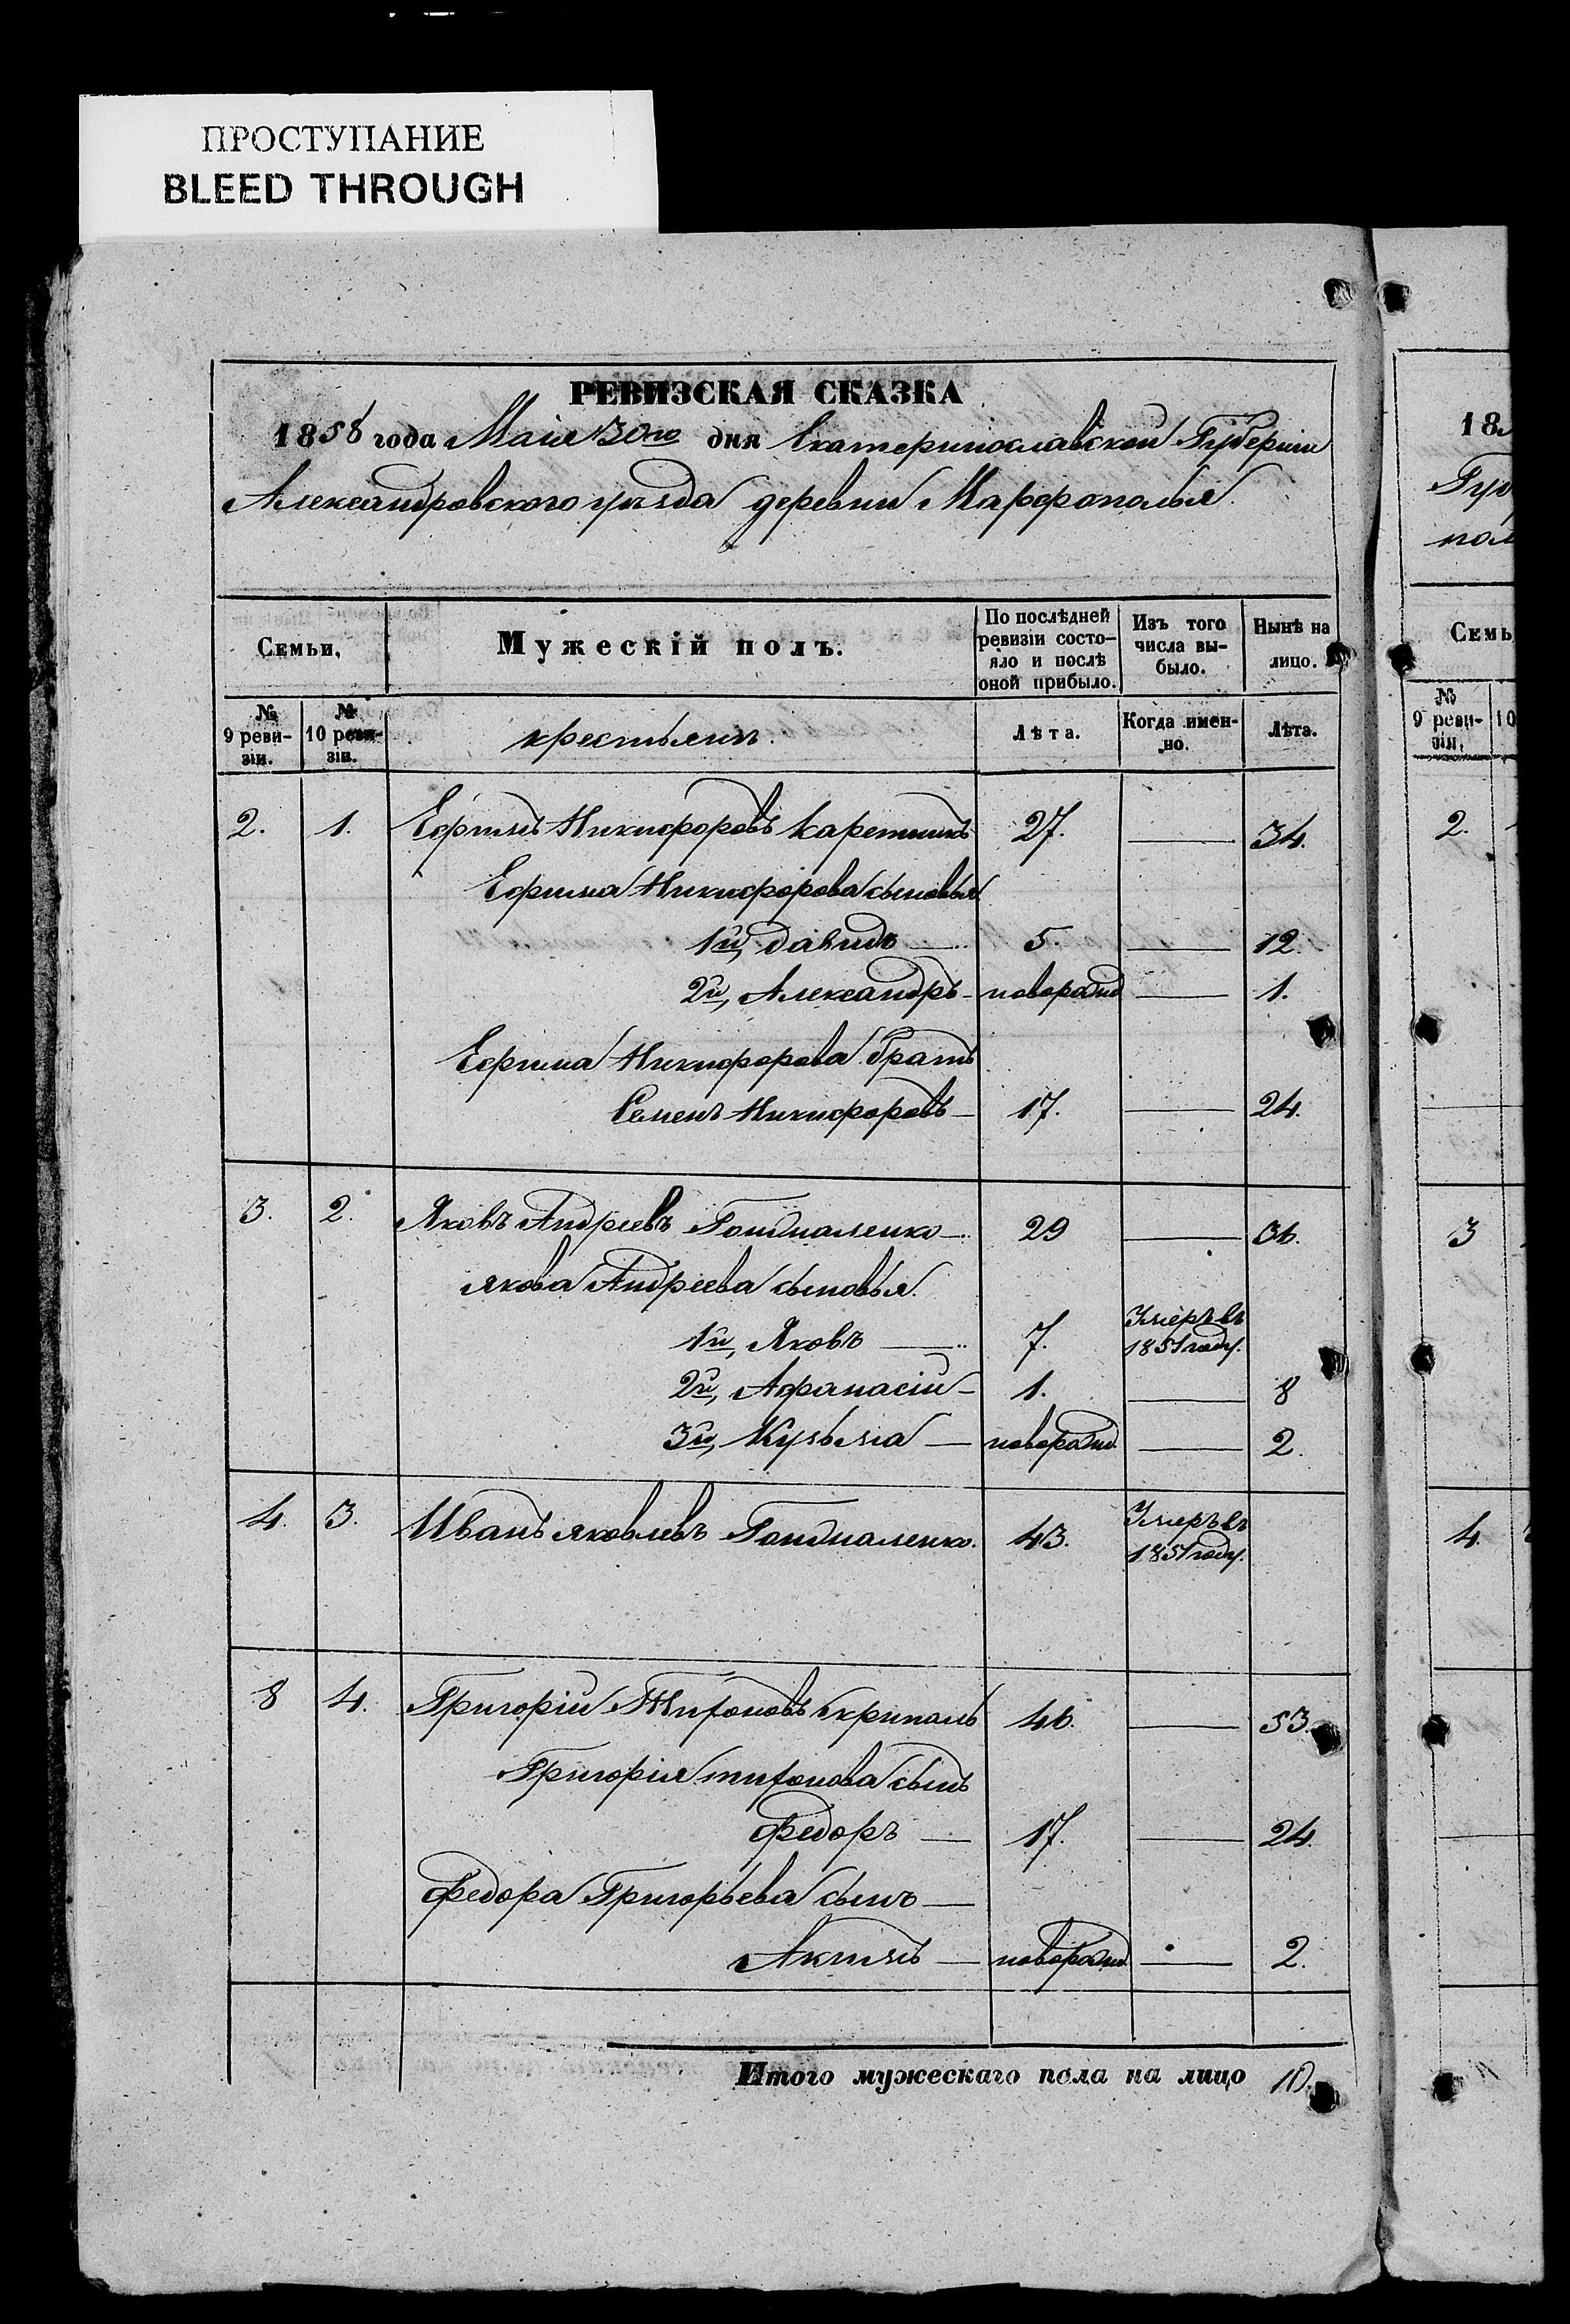 ПРОСТУПАНИЕ
BLEED THROUGH
РЕВИЗСКАЯ СКАЗКА
1858 года Маія 30го дня Екатеринославской Губерніи
Александровского уѣзда деревни Марфополья
Семьи, Мужескій полъ. По послѣдней ревизіи состояло и послѣ оной прибыло. Изъ того числа выбыло. Нынѣ на лицо.
№ 9 ревизіи. № 10 ревизіи. крестьянъ. Лѣта. Когда именно. Лѣта.
2. 1. Ефимъ Никифоровъ Каретникъ 27. — 34.
Ефима Никифорова сыновья
1й, Давидъ — 5. — 12.
2й, Александръ — новорожд — 1.
Ефима Никифорова братъ
Семенъ Никифоровъ — 17. — 24.
3. 2. Яковъ Андреевъ 29 — 36.
Якова Андреева сыновья
1й, Яковъ — 7. Умеръ въ 1851 году.
2й, Афанасій — 1. — 8
3й, Кузьма — новорожд. — 2.
4. 3. Иванъ Яковлевъ 43. Умеръ въ 1851 году.
8 4. Григорій Тихоновъ Скрипаль 46. — 53.
Григорія Тихонова сынъ
Федоръ — 17. — 24.
Федора Григорьева сынъ —
Акимъ — новорожд. — 2.
Итого мужескаго пола на лицо 10.
18
Губ
пол
Семь
№ 9 ревизіи. 10
2.
3
4.